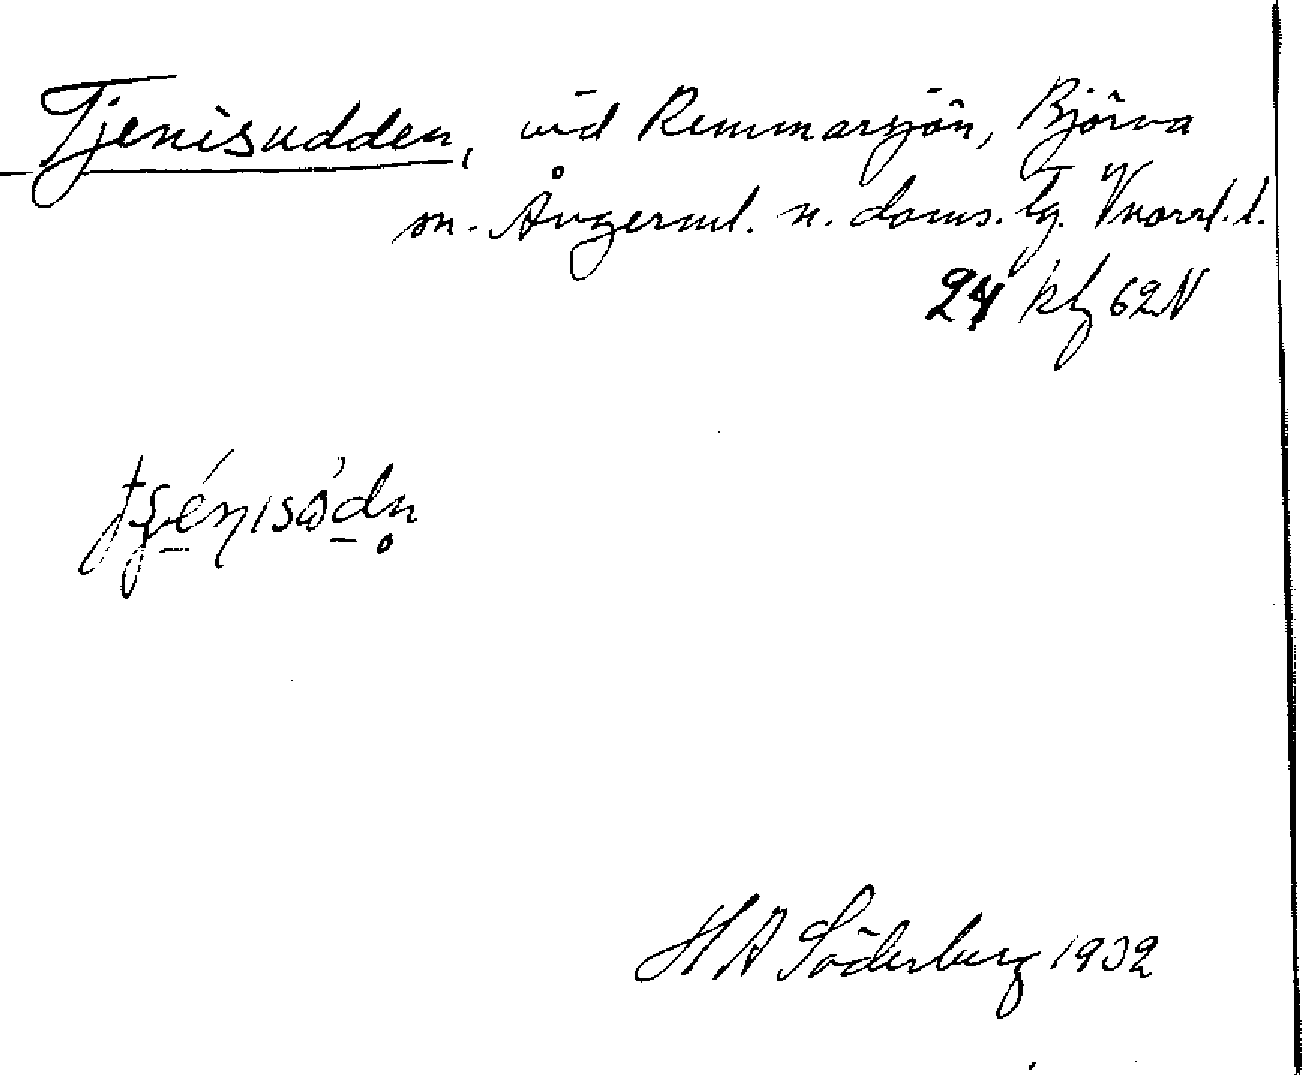 Tjenisudden, vid Remmarsjön, Björna
sn. Ångerml. n. doms. tg. Vnorrl. l.
24 kf 62N
H A Söderberg 1932